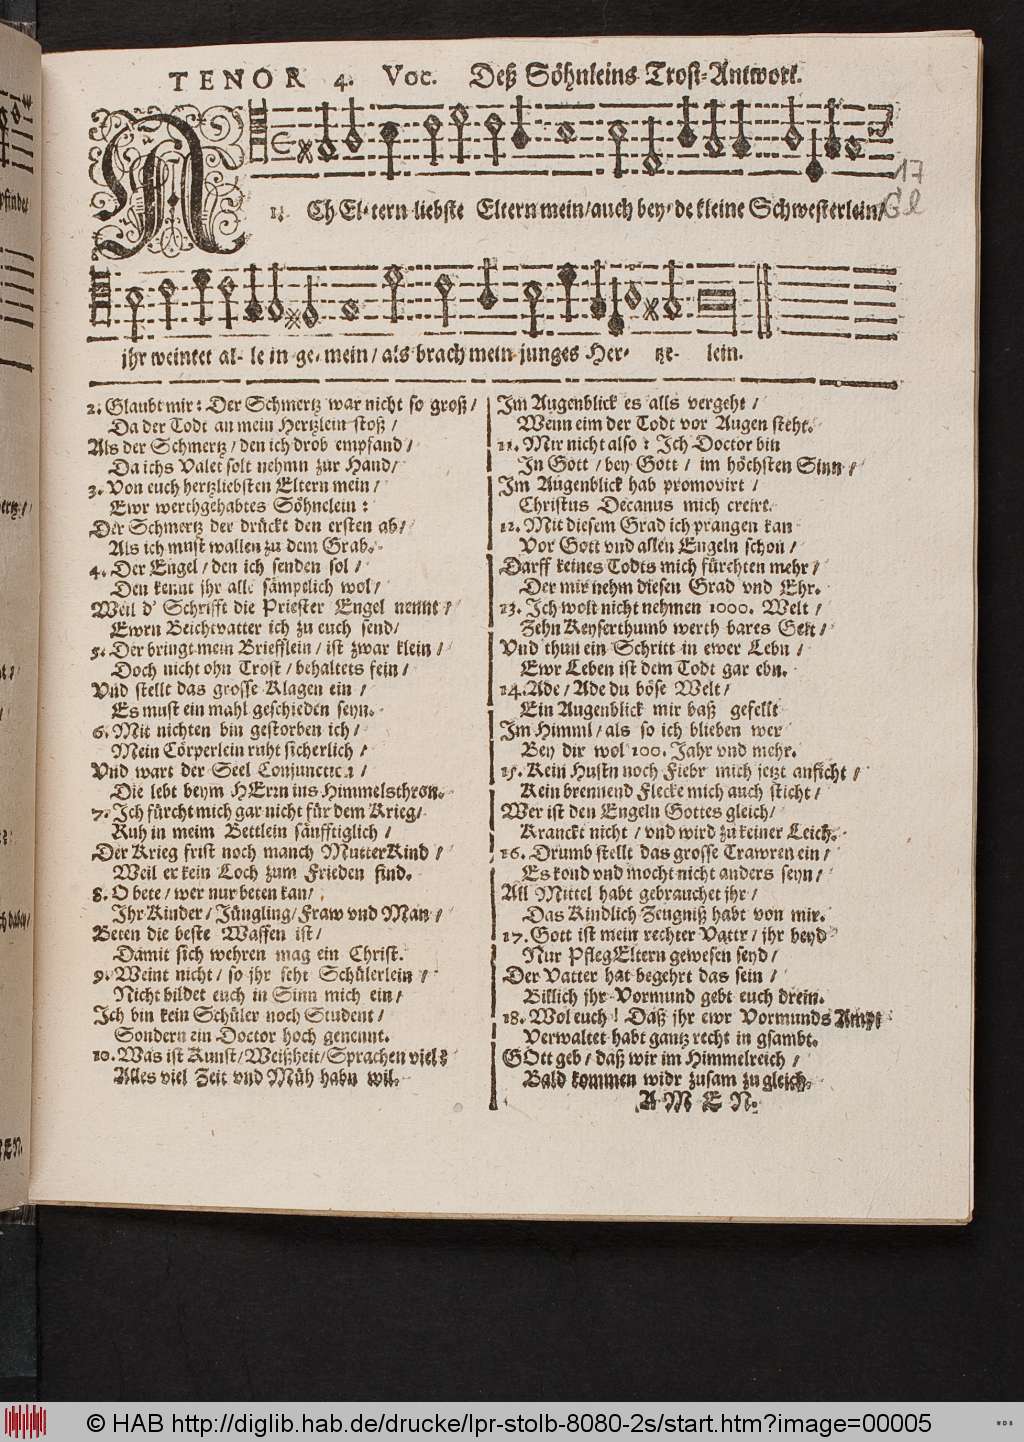 TENOR 4. Voc. Deß Söhnleins Trost-Antwort.
17
1. ACh El-tern liebste Eltern mein/ auch bey-de kleine Schwesterlein/
jhr weintet al-le in-ge-mein/ als brach mein junges Her-tze-lein.
2. Glaubt mir: Der Schmertz war nicht so groß/
Da der Todt an mein Hertzlein stoß/
Als der Schmertz/ den ich drob empfand/
Da ichs Valet solt nehmn zur Hand/
3. Von euch hertzliebsten Eltern mein/
Ewr werthgehabtes Söhnelein:
Der Schmertz der drückt den ersten ab/
Als ich must wallen zu dem Grab.
4. Der Engel/ den ich senden sol/
Den kennt jhr alle sämpelich wol/
Weil d' Schrifft die Priester Engel nennt/
Ewrn Beichtvatter ich zu euch send/
5. Der bringt mein Briefflein/ ist zwar klein/
Doch nicht ohn Trost/ behaltets fein/
Vnd stellt das grosse Klagen ein/
Es must ein mahl geschieden seyn.
6. Mit nichten bin gestorben ich/
Mein Cörperlein ruht sicherlich/
Vnd wart der Seel Conjunction/
Die lebt beym HErrn ins Himmelsthron.
7. Ich fürcht mich gar nicht für dem Krieg/
Ruh in meim Bettlein sänfftiglich/
Der Krieg frist noch manch MutterKind/
Weil er kein Loch zum Frieden find.
8. O bete/ wer nur beten kan/
Ihr Kinder/ Jüngling/ Fraw vnd Man/
Beten die beste Waffen ist/
Damit sich wehren mag ein Christ.
9. Weint nicht/ so jhr seht Schülerlein/
Nicht bildet euch in Sinn mich ein/
Ich bin kein Schüler noch Student/
Sondern ein Doctor hoch genennt.
10. Was ist Kunst/ Weißheit/ Sprachen viel?
Alles viel Zeit vnd Müh habn wil.
Im Augenblick es alls vergeht/
Wenn eim der Todt vor Augen steht.
11. Mir nicht also: Ich Doctor bin
In Gott/ bey Gott/ im höchsten Sinn/
Im Augenblick hab promovirt/
Christus Decanus mich creirt.
12. Mit diesem Grad ich prangen kan
Vor Gott vnd allen Engeln schon/
Darff keines Todts mich fürchten mehr/
Der mir nehm diesen Grad vnd Ehr.
13. Ich wolt nicht nehmen 1000. Welt/
Zehn Keyserthumb werth bares Gelt/
Vnd thun ein Schritt in ewer Lebn/
Ewr Leben ist dem Todt gar ebn.
14. Ade/ Ade du böse Welt/
Ein Augenblick mir baß gefellt
Im Himml/ als so ich blieben wer
Bey dir wol 100. Jahr vnd mehr.
15. Kein Hustn noch Fiebr mich jetzt anficht/
Kein brennend Flecke mich auch sticht/
Wer ist den Engeln Gottes gleich/
Kranckt nicht/ vnd wird zu keiner Leich.
16. Drumb stellt das grosse Trawren ein/
Es kond vnd mocht nicht anders seyn/
All Mittel habt gebrauchet jhr/
Das Kindlich Zeugniß habt von mir.
17. Gott ist mein rechter Vattr/ jhr beyd
Nur PflegEltern gewesen seyd/
Der Vatter hat begehrt das sein/
Billich jhr Vormund gebt euch drein.
18. Wol euch! Daß jhr ewr Vormunds Ampt
Verwaltet habt gantz recht in gsambt.
GOtt geb/ daß wir im Himmelreich/
Bald kommen widr zusam zu gleich.
AMEN.
© HAB http://diglib.hab.de/drucke/lpr-stolb-8080-2s/start.htm?image=00005